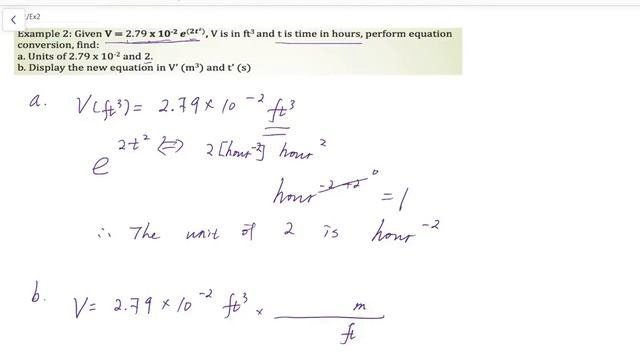 /Ex2
Example 2: Given V = 2.79 x 10⁻² e^(2t²), V is in ft³ and t is time in hours, perform equation
conversion, find:
a. Units of 2.79 x 10⁻² and 2.
b. Display the new equation in V' (m³) and t' (s)
a. V(ft³) = 2.79 × 10⁻² ft³
e^2t² ⇔ 2 [hour⁻²] hour²
hour^-2+2 0 = 1
∴ The unit of 2 is hour⁻²
b. V = 2.79 × 10⁻² ft³ × m
ft